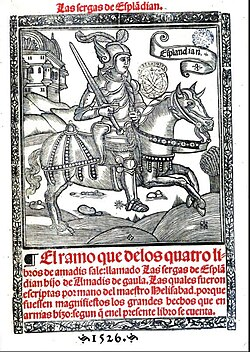 Las sergas de Esplãdian.
Esplandian.
¶ El ramo que delos quatro li
bros de amadis sale: llamado Las sergas de Esplã
dian hijo de Amadis de gaula. Las quales fueron
escriptas por mano del maestro Helisabad, porque
fuessen magnifiestos los grandes hechos que en
armas hizo: segun q̃ enel presente libro se cuenta.
1526.